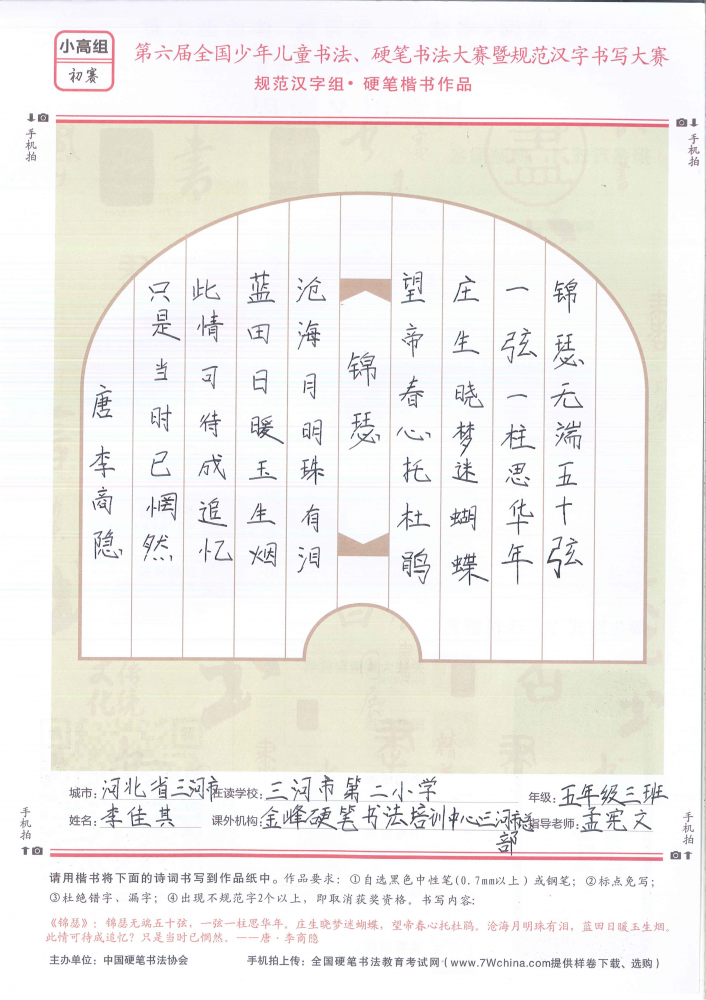 小高组
初赛
第六届全国少年儿童书法、硬笔书法大赛暨规范汉字书写大赛
规范汉字组·硬笔楷书作品
手机拍
手机拍
锦瑟无端五十弦
一弦一柱思华年
庄生晓梦迷蝴蝶
望帝春心托杜鹃
锦瑟
沧海月明珠有泪
蓝田日暖玉生烟
此情可待成追忆
只是当时已惘然
唐李商隐
城市：河北省三河市 在读学校：三河市第二小学 年级：五年级三班
姓名：李佳其 课外机构：金峰硬笔书法培训中心三河市总部 指导老师：孟宪文
手机拍
手机拍
请用楷书将下面的诗词书写到作品纸中。作品要求：①自选黑色中性笔(0.7mm以上）或钢笔；②标点免写；
③杜绝错字、漏字；④出现不规范字2个以上，即取消获奖资格。书写内容：
《锦瑟》：锦瑟无端五十弦，一弦一柱思华年。庄生晓梦迷蝴蝶，望帝春心托杜鹃。沧海月明珠有泪，蓝田日暖玉生烟。
此情可待成追忆？只是当时已惘然。——唐·李商隐
主办单位：中国硬笔书法协会 手机拍上传：全国硬笔书法教育考试网（www.7Wchina.com提供样卷下载、选购）